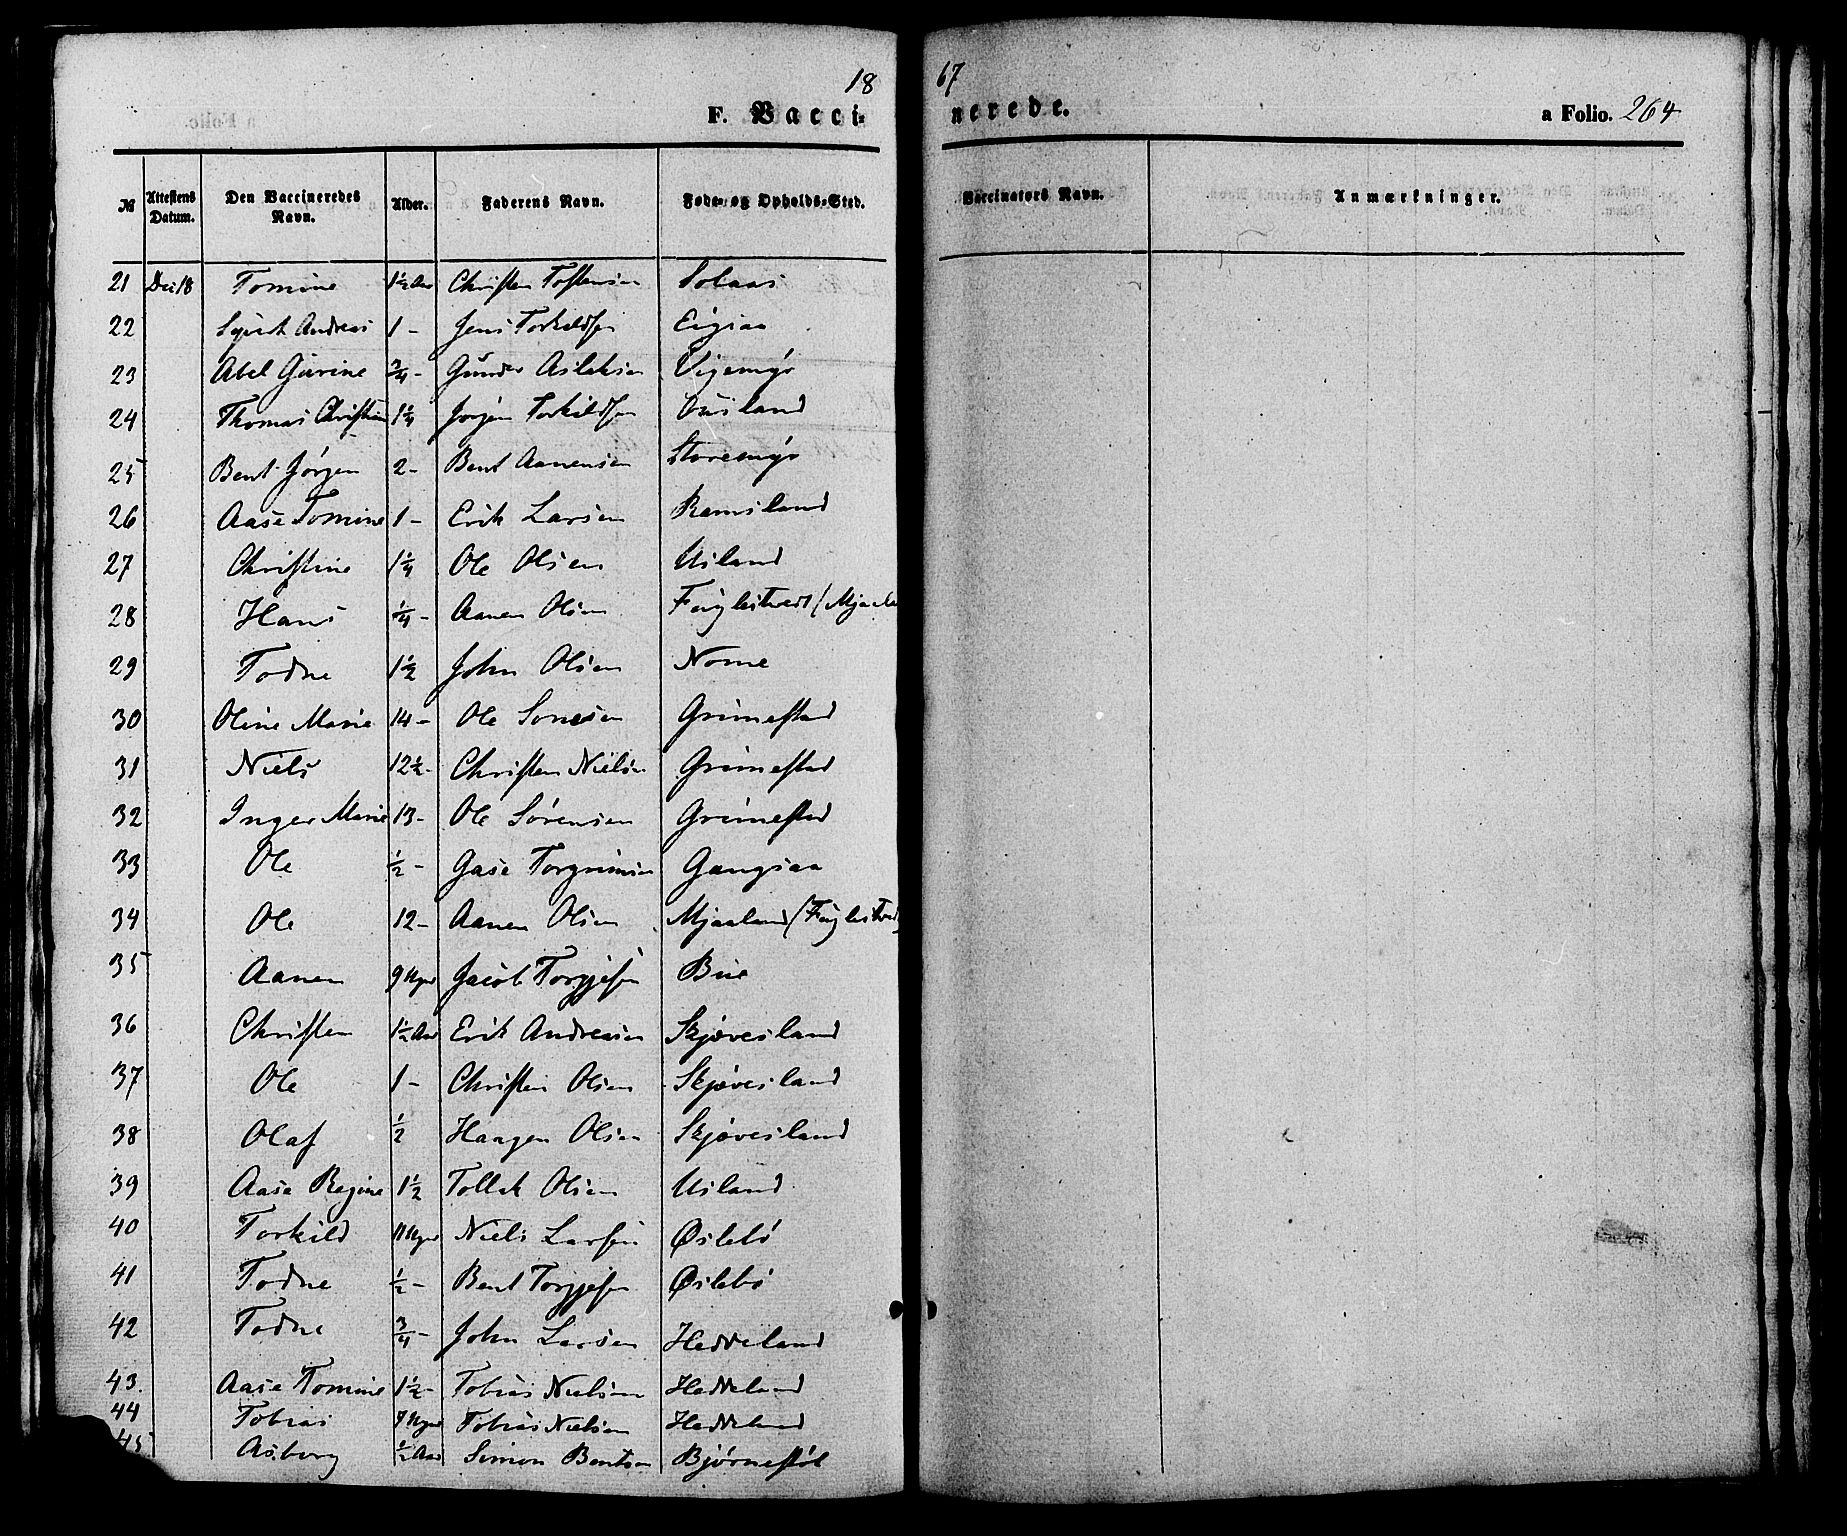 18 67
F. Vacci- nerede. a Folio. 264
№ Attestens Datum. Den Vaccineredes Navn. Alder. Faderens Navn. Føde- og Opholds-Sted. Vaccinators Navn. Anmærkninger.
21 Dec 18 Tomine 1½ Aar Christen Tostensen Solaas
22 Syvert Andreas 1 - Jens Torkildsen Eigiaa
23 Abel Gurine ¾ - Gunder Aslaksen Vigemyr
24 Thomas Christian 1¼ Jørgen Torkildsen Ousland
25 Bent Jørgen 2 - Bent Aanensen Storemyr
26 Aase Tomine 1 - Erik Larsen Ramsland
27 Christine 1¼ Ole Olsen Usland
28 Hans ¼ - Aanen Olsen Fuglestvedt (Mjaala
29 Todne 1½ John Olsen Nome
30 Oline Marie 14 - Ole Sørensen Grimestad
31 Niels 12½ - Christen Nielsen Grimestad
32 Inger Marie 13 - Ole Sørensen Grimestad
33 Ole ½ - Gase Torgrimsen Gangsaa
34 Ole 12 - Aanen Olsen Mjaaland (Fuglestved)
35 Aanen 9 Uger Jacob Torgjesen Bue
36 Christen 1½ Aar Erik Andreasen Skjævesland
37 Ole 1 - Christen Olsen Skjævesland
38 Olaf ½ Haagen Olsen Skjævesland
39 Aase Regine 1½ Tollak Olsen Usland
40 Torkild 11 Uger Niels Larsen Øslebø
41 Todne ½ - Bent Torgjesen Øslebø
42 Todne ¾ - John Larsen Heddeland
43. Aase Tomine 1½ - Tobias Nielsen Heddeland
44 Tobias 7 Uger Tobias Nielsen Heddeland
45 Asborg ½ Aar Simon Bentsen Bjørnestøl